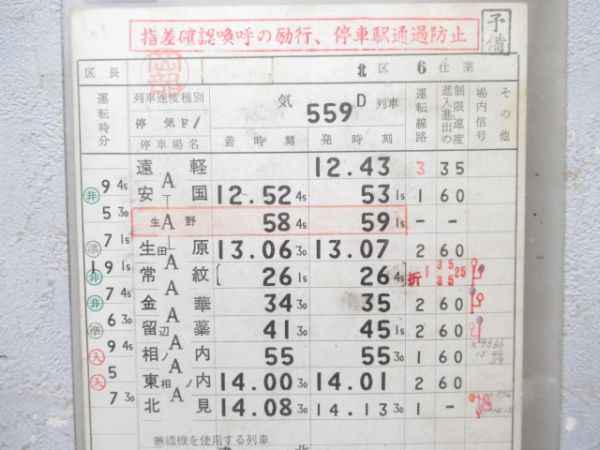 指差確認喚呼の励行、停車駅通過防止
予備
区長 北区 6仕業
運転時分 列車速度種別 停気F1 気 559D 列車 運転線路 制限速度 進入進出の 場内信号 その他
停車場名 着時刻 発時刻
遠軽 12.43 3 35
9 45
安国 12.52 45 53 15 1 60
非 5 30
生野 58 45 59 15 - -
7 15
生田原 13.06 30 13.07 2 60
19 15
常紋 [26 15 26 45] 折 1 35 35 25
非 7 45
金華 34 30 35 2 60
6 30
留辺蘂 41 30 45 15 2 60
入 9 45
相ノ内 55 55 30 1 60
入 5
東相ノ内 14.00 30 14.01 2 60
7 30
北見 14.08 30 14.13 30 1 -
無線機を使用する列車